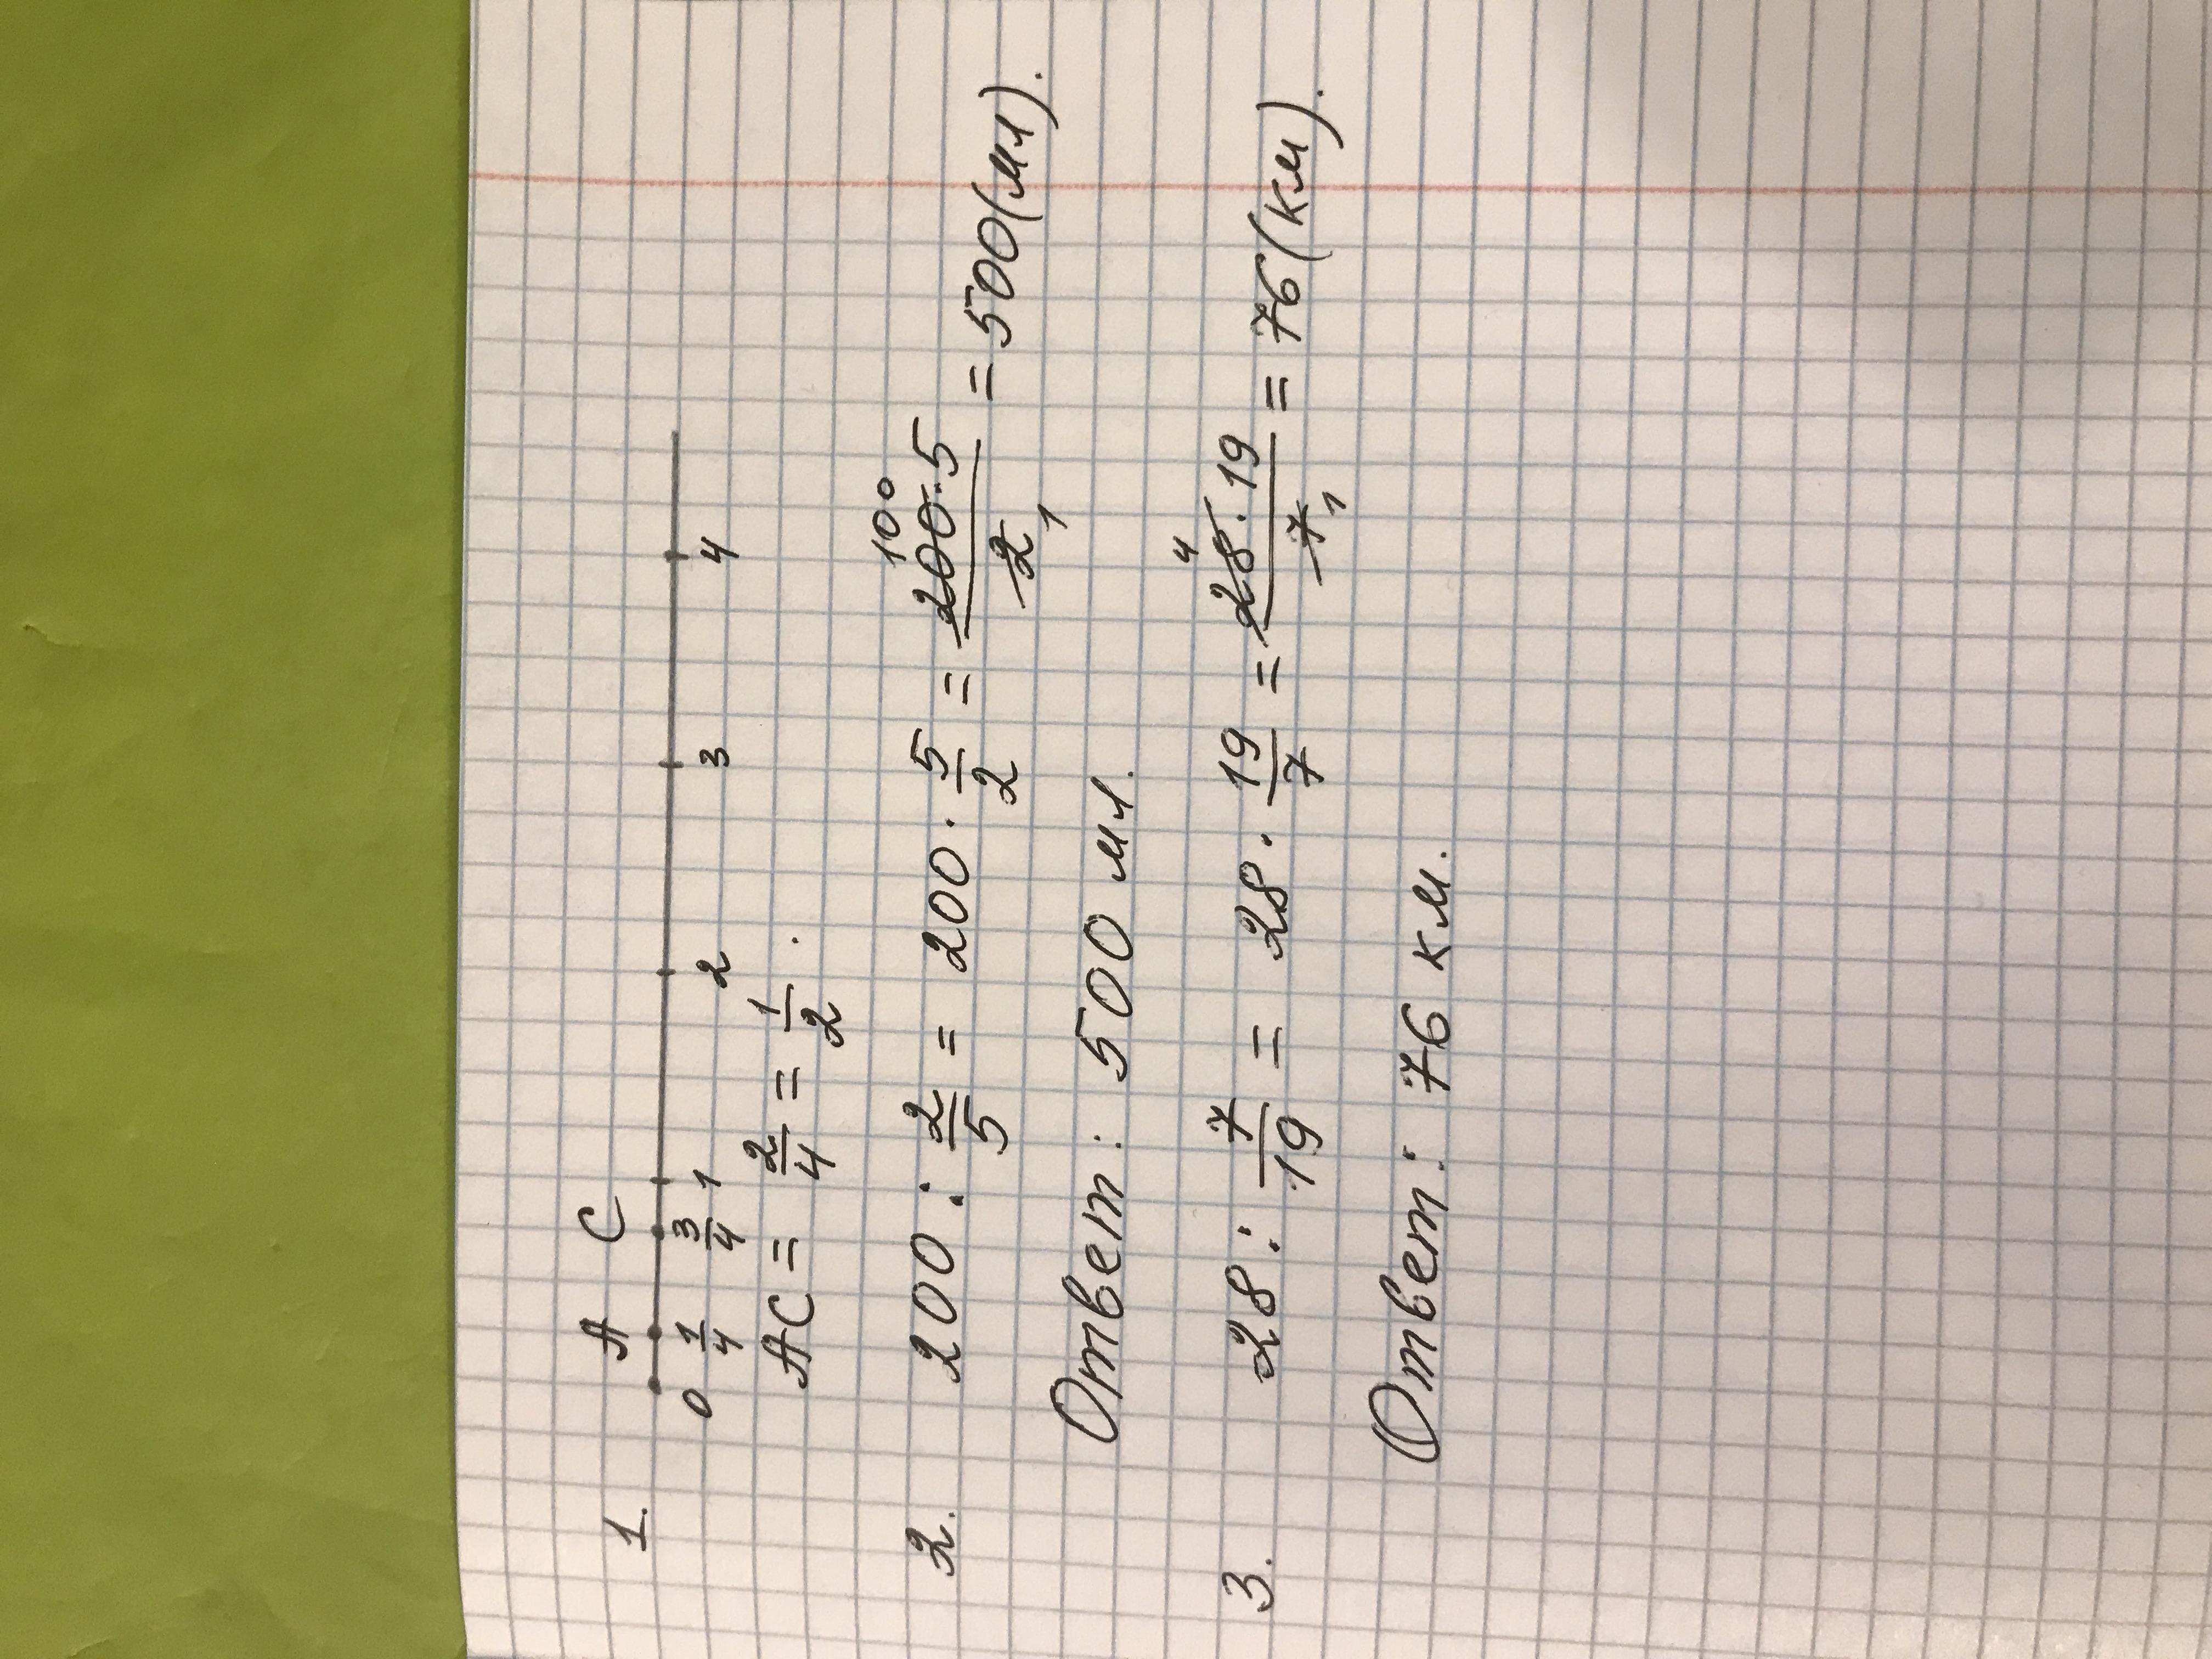 1. A C
0 1/4 3/4 1 2 3 4
AC = 2/4 = 1/2.
2. 200 : 2/5 = 200 · 5/2 = 200 · 5 / 2 = 500 (мл).
100
1
Ответ: 500 мл.
3. 28 : 7/19 = 28 · 19/7 = 28 · 19 / 7 = 76 (км).
4
1
Ответ: 76 км.